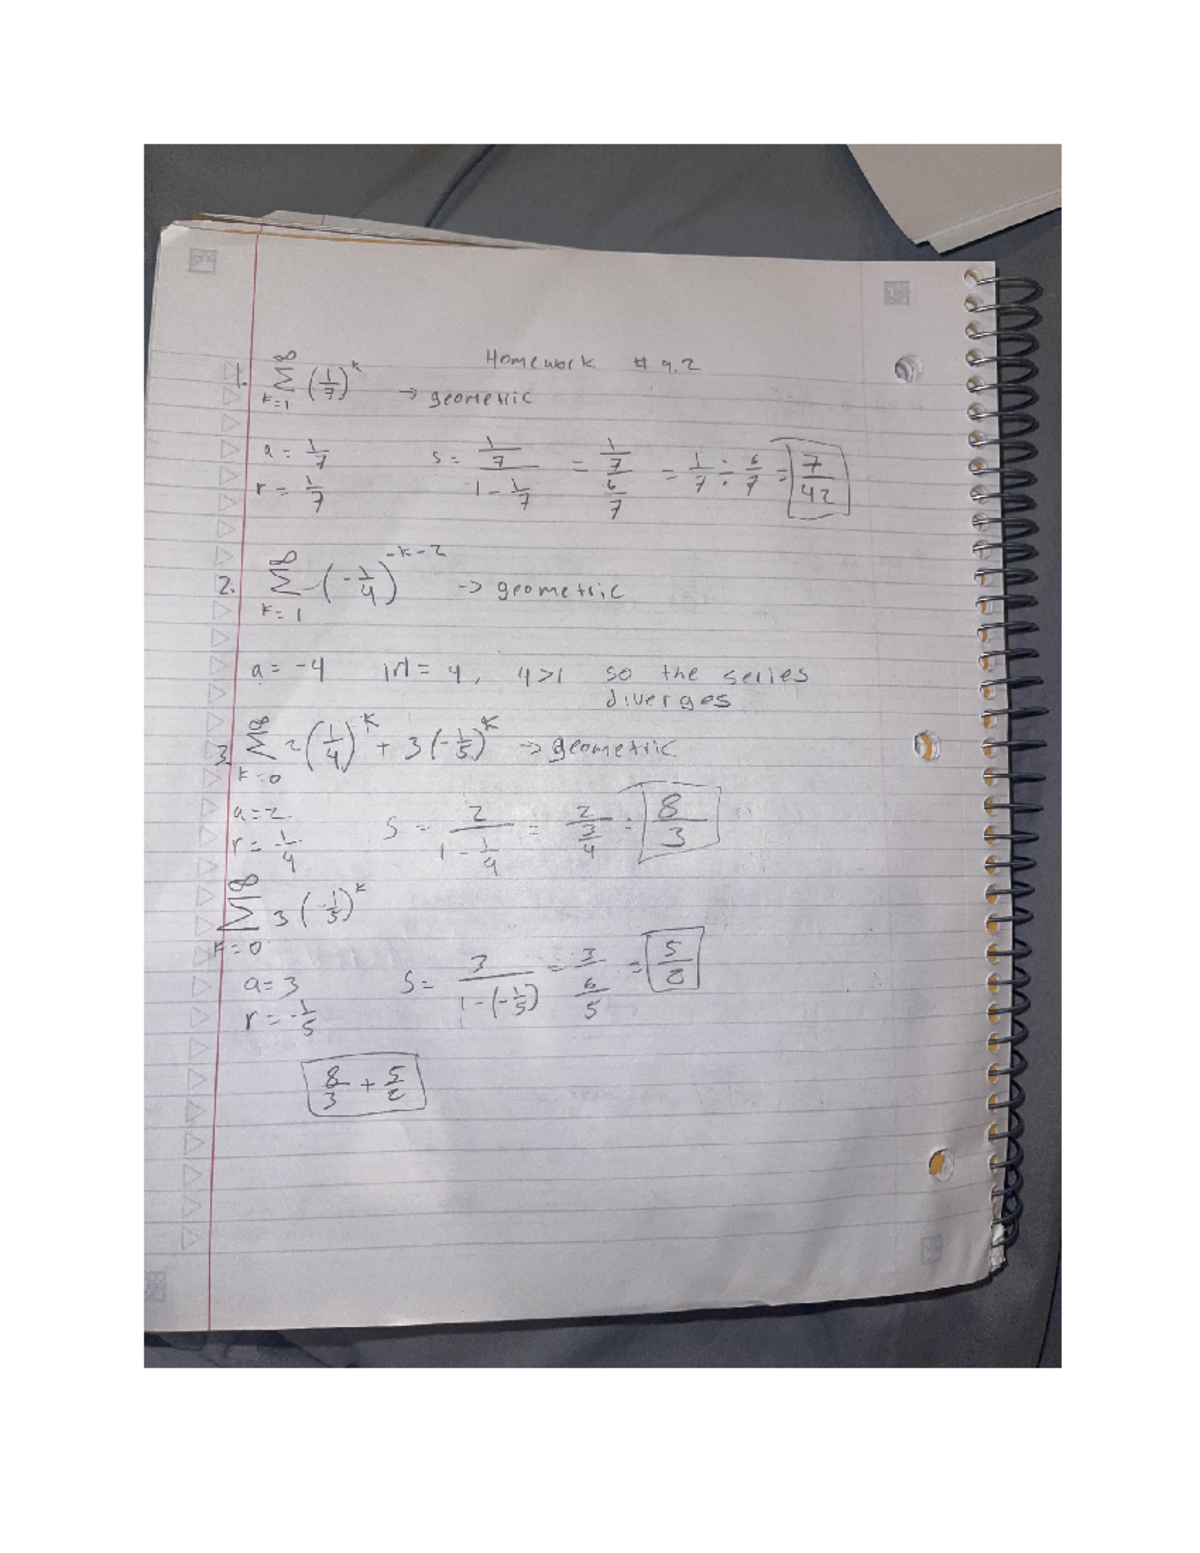 Homework # 9.2
1. ∞ Σ k=1 (1/7)^k → geometric
a = 1/7 s = (1/7)/(1 - 1/7) = (1/7)/(6/7) = 1/7 ÷ 6/7 = 7/42
r = 1/7
2. ∞ Σ k=1 (-1/4)^(-k-2) → geometric
a = -4 |r| = 4, 4>1 so the series
diverges
3. ∞ Σ k=0 2(1/4)^k + 3(-1/5)^k → geometric
a=2 S = 2/(1 - 1/4) = 2/(3/4) = 8/3
r = 1/4
∞ Σ k=0 3(-1/5)^k
a=3 S = 3/(1-(-1/5)) = 3/(6/5) = 5/2
r = -1/5
8/3 + 5/2